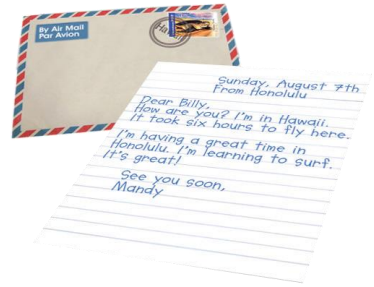 By Air Mail
Par Avion
Hawaii
Sunday, August 7th
From Honolulu
Dear Billy,
How are you? I'm in Hawaii.
It took six hours to fly here.
I'm having a great time in
Honolulu. I'm learning to surf.
It's great!
See you soon,
Mandy